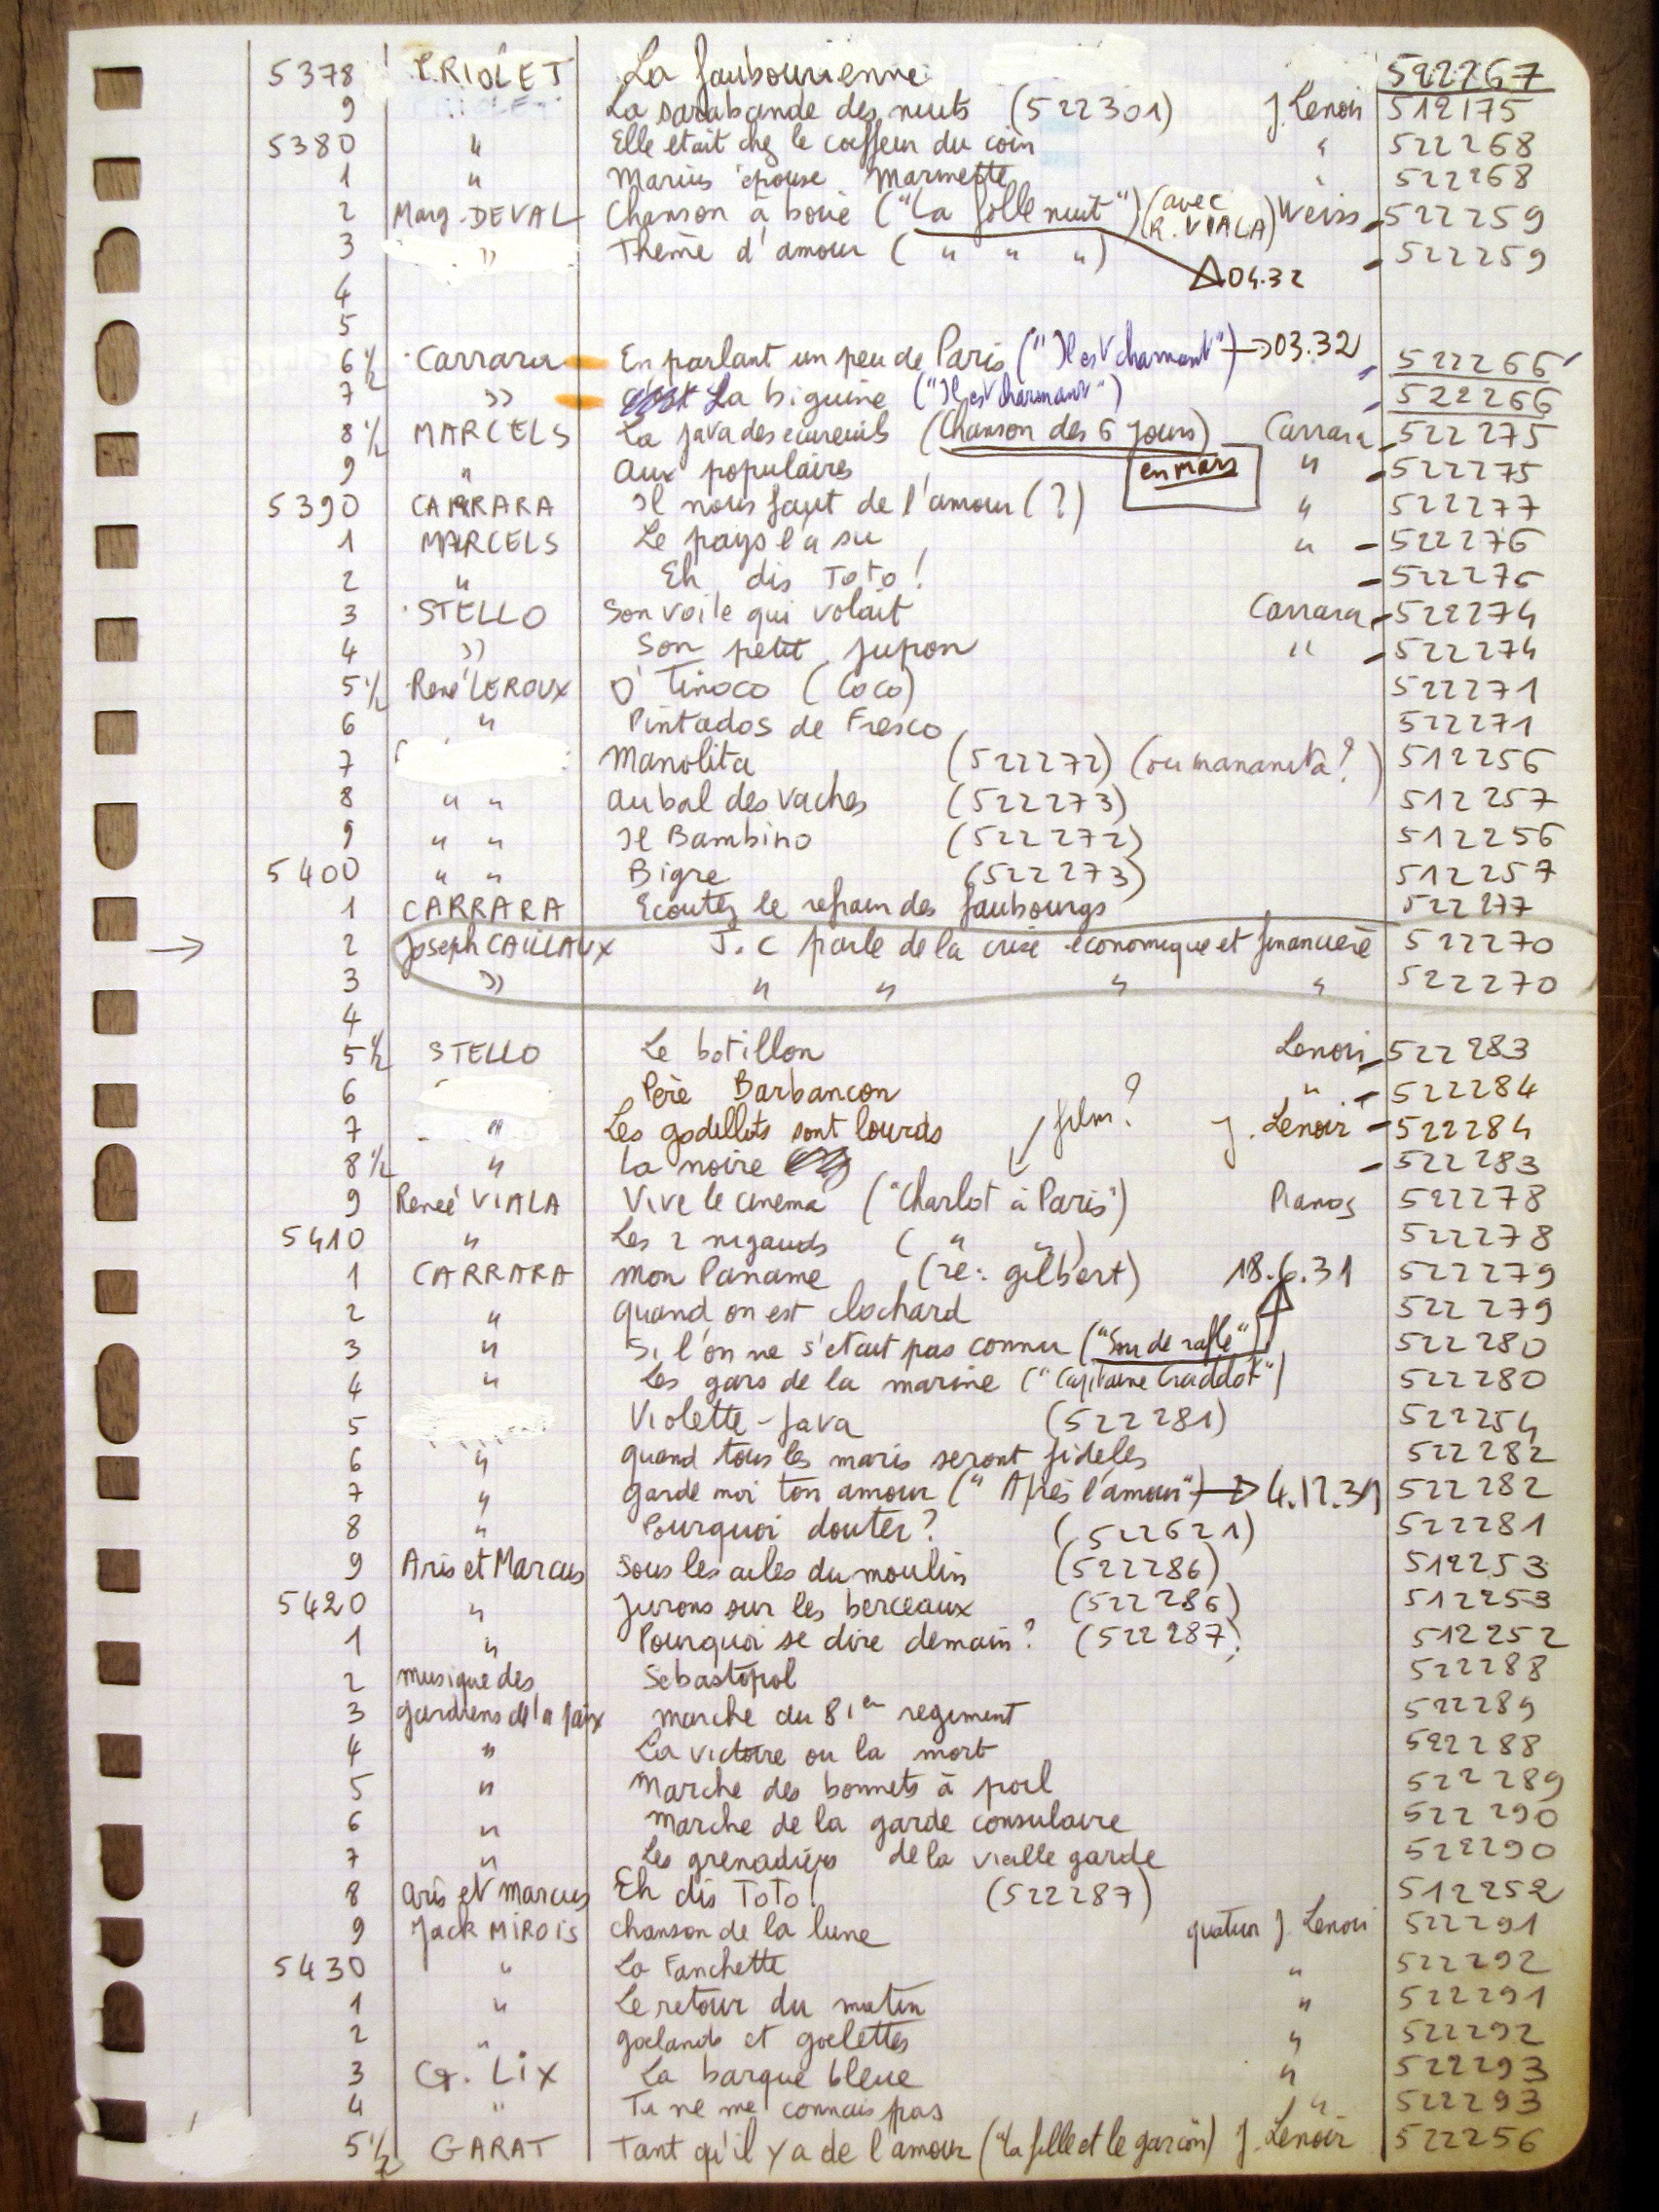 5378 PRIOLET La faubourienne 522267
9 La sarabande des nuits (522301) J. Lenoir 512175
5380 " Elle était chez le coiffeur du coin " 522268
1 " Marius épouse Marinette " 522268
2 Marg. DEVAL Chanson à boire ("La folle nuit") (avec R. VIALA) Weiss - 522259
3 " Thème d'amour ( " " " ) - 522259
→ 04.32
4
5
6 1/2 Carrara En parlant un peu de Paris ("Il est charmant") → 03.32 522266
7 1/2 " La biguine ("Il est charmant") 522266
8 1/2 MARCELS La java des écureuils (Chanson des 6 jours) Carrara - 522275
9 " Aux populaires en mars " - 522275
5390 CARRARA Il nous faut de l'amour (?) " 522277
1 MARCELS Le pays l'a su " - 522276
2 " Eh dis Toto! - 522276
3 STELLO Son voile qui volait Carrara - 522274
4 " Son petit jupon " - 522274
5 1/2 René LEROUX O' Tinoco (Coco) 522271
6 " Pintados de Fresco 522271
7 Manolita (522272) (ou mananita?) 512256
8 " " au bal des vaches (522273) 512257
9 " " Il Bambino (522272) 512256
5400 " " Bigre (522273) 512257
1 CARRARA Ecoutez le refrain des faubourgs 522277
→ 2 Joseph CAILLAUX J. C parle de la crise économique et financière 522270
3 " " " " " 522270
4
5 1/2 STELLO Le botillon Lenoir - 522283
6 Père Barbancon " - 522284
7 " Les godillots sont lourds film? J. Lenoir - 522284
8 1/2 " La noire - 522283
9 Renée VIALA Vive le cinema ("Charlot à Paris") Pianos 522278
5410 " Les 2 nigauds ( " " ) 522278
1 CARRARA Mon Paname (re: gilbert) 18.6.31 522279
2 " quand on est clochard 522279
3 " Si l'on ne s'etait pas connu ("Soir de rafle") 522280
4 " Les gars de la marine ("Capitaine Craddok") 522280
5 Violette-Java (522281) 522254
6 " quand tous les maris seront fidèles 522282
7 " garde moi ton amour ("Après l'amour") → 4.12.31 522282
8 " Pourquoi douter? (522621) 522281
9 Aris et Marcus Sous les ailes du moulin (522286) 512253
5420 " Jurons sur les berceaux (522286) 512253
1 " Pourquoi se dire demain? (522287) 512252
2 musique des Sebastopol 522288
3 gardiens de la paix marche du 81er regiment 522289
4 " La victoire ou la mort 522288
5 " Marche des bonnets à poil 522289
6 " Marche de la garde consulaire 522290
7 " Les grenadiers de la vieille garde 522290
8 Aris et Marcus Eh dis Toto! (522287) 512252
9 Jack MIROIS chanson de la lune quatuor J. Lenoir 522291
5430 " La Fanchette " 522292
1 " Le retour du matin " 522291
2 " goelands et goelettes " 522292
3 G. LIX La barque bleue " 522293
4 " Tu ne me connais pas " 522293
5 1/2 GARAT Tant qu'il y a de l'amour ("la fille et le garçon) J. Lenoir 522256